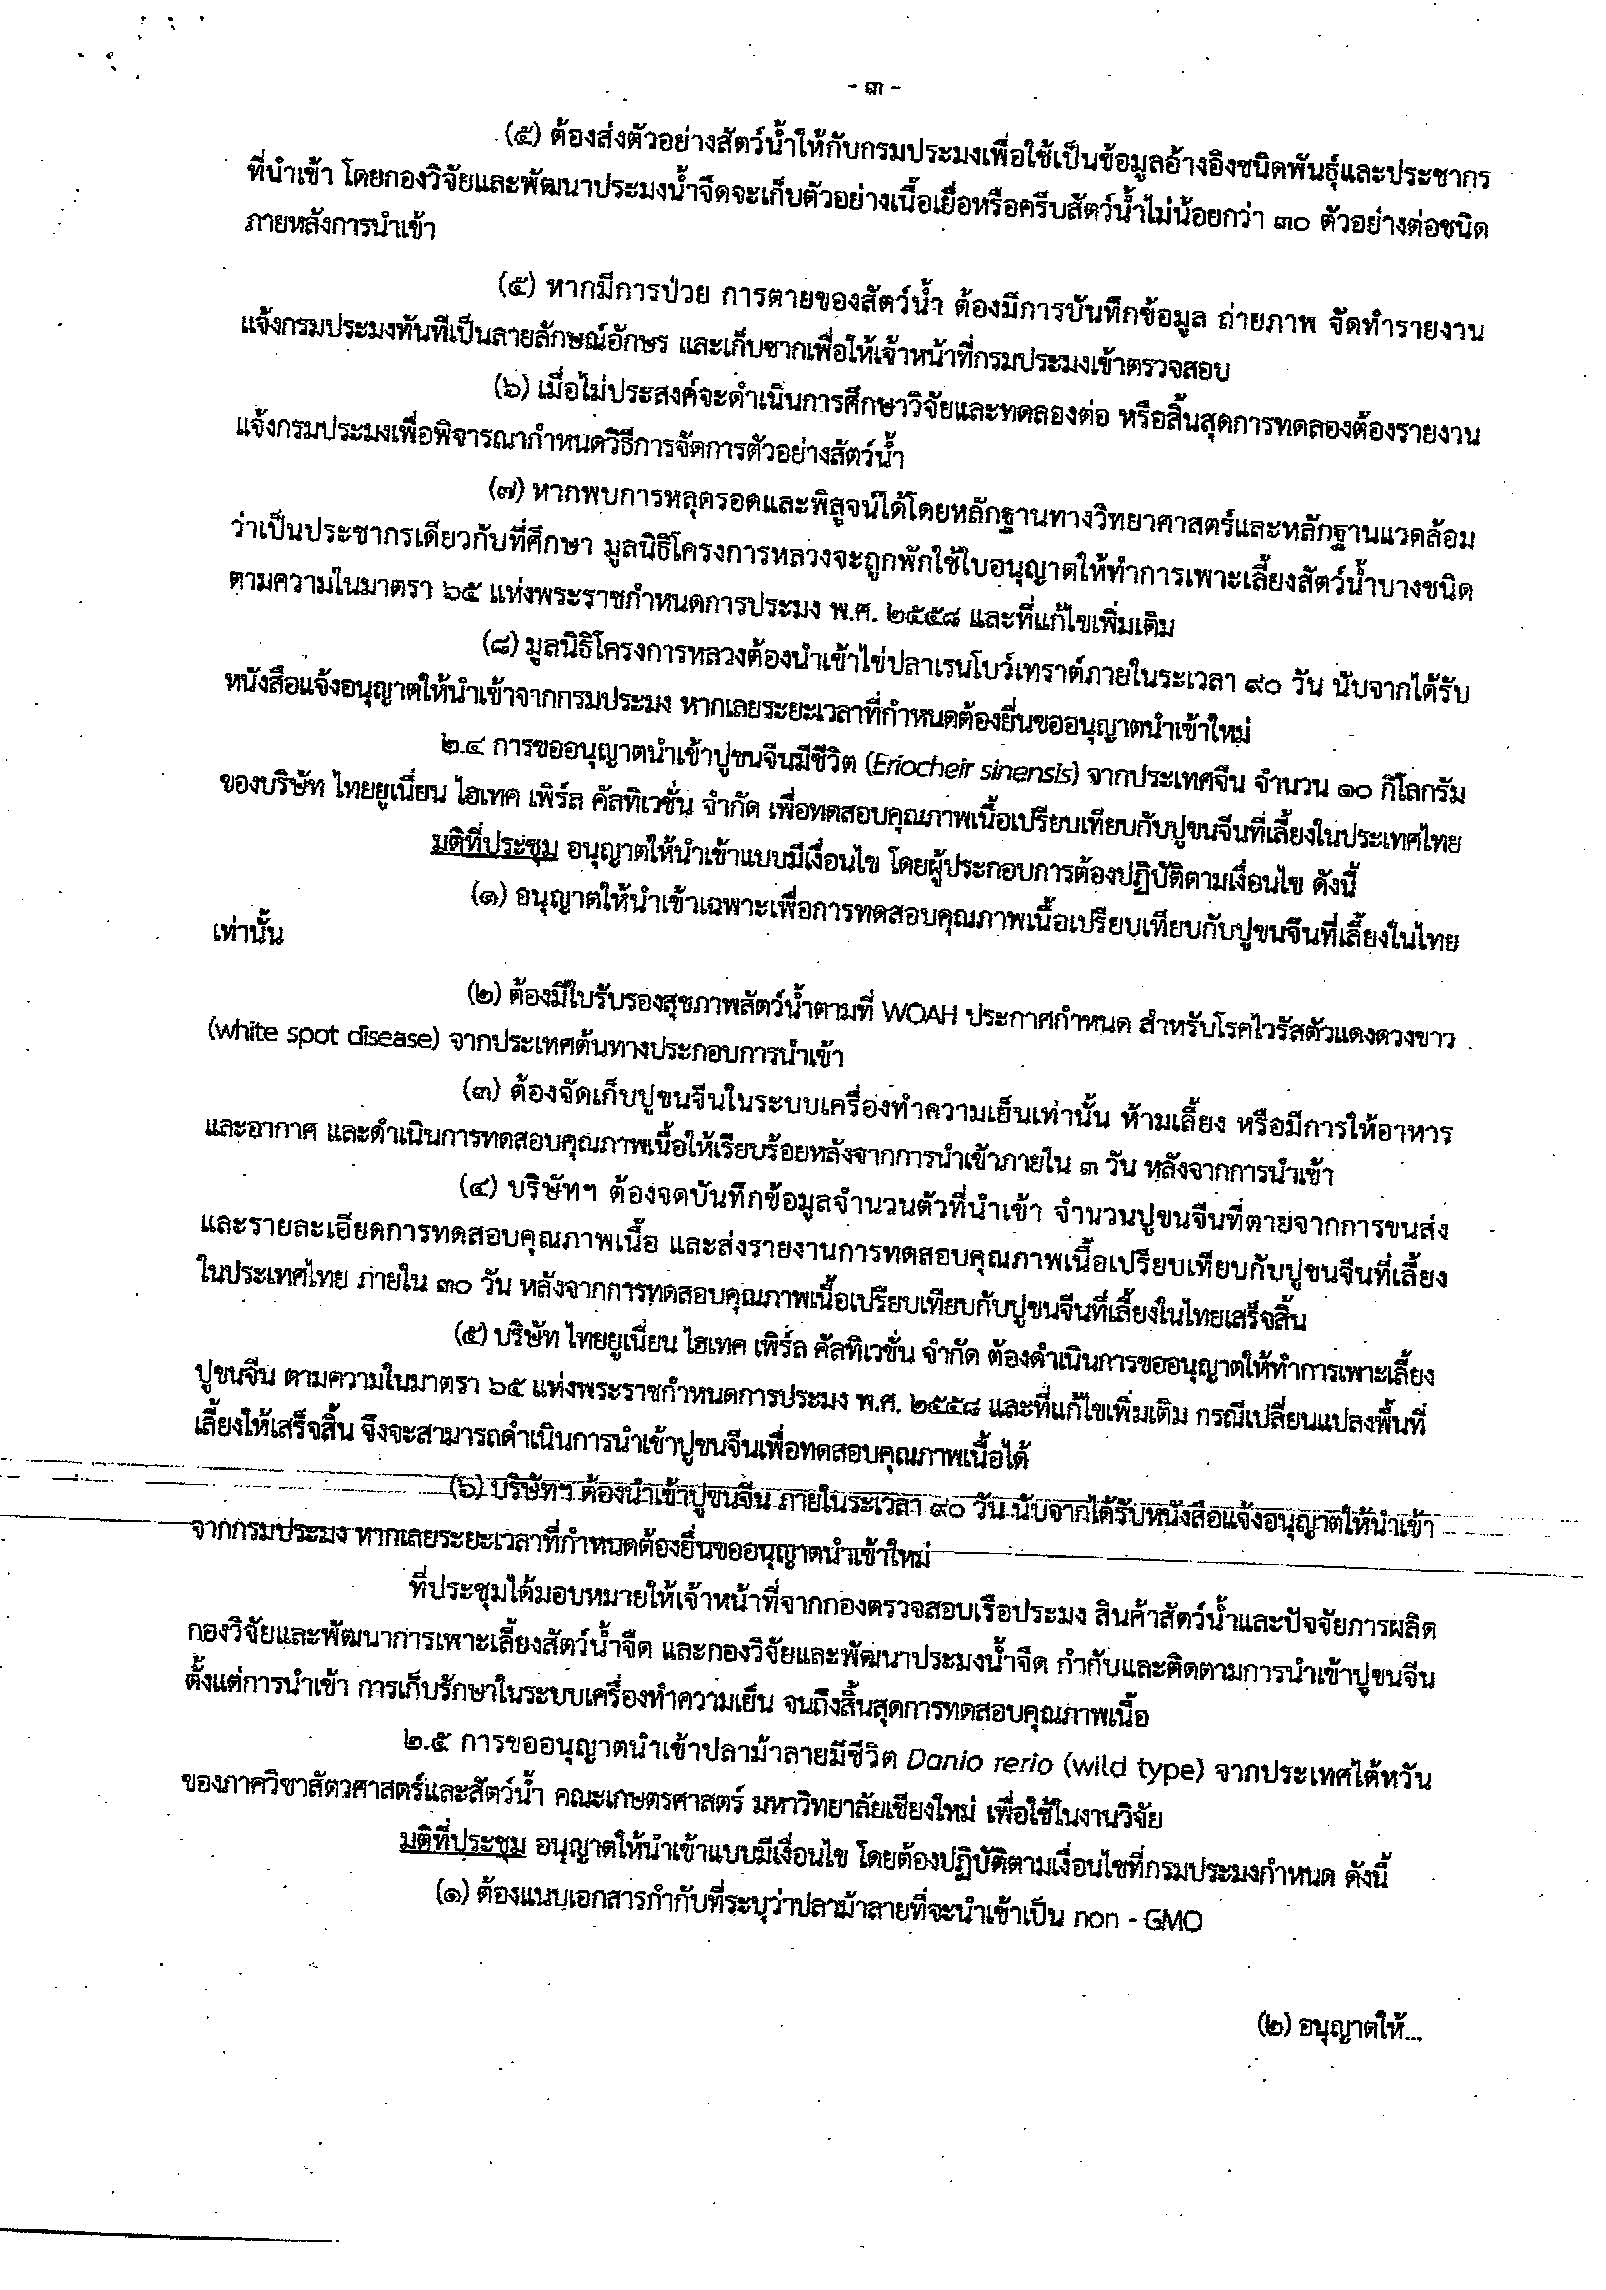 - ๓ -
(๕) ต้องส่งตัวอย่างสัตว์น้ำให้กับกรมประมงเพื่อใช้เป็นข้อมูลอ้างอิงชนิดพันธุ์และประชากร
ที่นำเข้า โดยกองวิจัยและพัฒนาประมงน้ำจืดจะเก็บตัวอย่างเนื้อเยื่อหรือครีบสัตว์น้ำไม่น้อยกว่า ๓๐ ตัวอย่างต่อชนิด
ภายหลังการนำเข้า
(๕) หากมีการป่วย การตายของสัตว์น้ำ ต้องมีการบันทึกข้อมูล ถ่ายภาพ จัดทำรายงาน
แจ้งกรมประมงทันทีเป็นลายลักษณ์อักษร และเก็บซากเพื่อให้เจ้าหน้าที่กรมประมงเข้าตรวจสอบ
(๖) เมื่อไม่ประสงค์จะดำเนินการศึกษาวิจัยและทดลองต่อ หรือสิ้นสุดการทดลองต้องรายงาน
แจ้งกรมประมงเพื่อพิจารณากำหนดวิธีการจัดการตัวอย่างสัตว์น้ำ
(๗) หากพบการหลุดรอดและพิสูจน์ได้โดยหลักฐานทางวิทยาศาสตร์และหลักฐานแวดล้อม
ว่าเป็นประชากรเดียวกับที่ศึกษา มูลนิธิโครงการหลวงจะถูกพักใช้ใบอนุญาตให้ทำการเพาะเลี้ยงสัตว์น้ำบางชนิด
ตามความในมาตรา ๖๕ แห่งพระราชกำหนดการประมง พ.ศ. ๒๕๕๘ และที่แก้ไขเพิ่มเติม
(๘) มูลนิธิโครงการหลวงต้องนำเข้าไข่ปลาเรนโบว์เทราต์ภายในระเวลา ๙๐ วัน นับจากได้รับ
หนังสือแจ้งอนุญาตให้นำเข้าจากกรมประมง หากเลยระยะเวลาที่กำหนดต้องยื่นขออนุญาตนำเข้าใหม่
๒.๔ การขออนุญาตนำเข้าปูขนจีนมีชีวิต (Eriocheir sinensis) จากประเทศจีน จำนวน ๑๐ กิโลกรัม
ของบริษัท ไทยยูเนี่ยน ไฮเทค เพิร์ล คัลทิเวชั่น จำกัด เพื่อทดสอบคุณภาพเนื้อเปรียบเทียบกับปูขนจีนที่เลี้ยงในประเทศไทย
มติที่ประชุม อนุญาตให้นำเข้าแบบมีเงื่อนไข โดยผู้ประกอบการต้องปฏิบัติตามเงื่อนไข ดังนี้
(๑) อนุญาตให้นำเข้าเฉพาะเพื่อการทดสอบคุณภาพเนื้อเปรียบเทียบกับปูขนจีนที่เลี้ยงในไทย
เท่านั้น
(๒) ต้องมีใบรับรองสุขภาพสัตว์น้ำตามที่ WOAH ประกาศกำหนด สำหรับโรคไวรัสตัวแดงดวงขาว
(white spot disease) จากประเทศต้นทางประกอบการนำเข้า
(๓) ต้องจัดเก็บปูขนจีนในระบบเครื่องทำความเย็นเท่านั้น ห้ามเลี้ยง หรือมีการให้อาหาร
และอากาศ และดำเนินการทดสอบคุณภาพเนื้อให้เรียบร้อยหลังจากการนำเข้าภายใน ๓ วัน หลังจากการนำเข้า
(๔) บริษัทฯ ต้องจดบันทึกข้อมูลจำนวนตัวที่นำเข้า จำนวนปูขนจีนที่ตายจากการขนส่ง
และรายละเอียดการทดสอบคุณภาพเนื้อ และส่งรายงานการทดสอบคุณภาพเนื้อเปรียบเทียบกับปูขนจีนที่เลี้ยง
ในประเทศไทย ภายใน ๓๐ วัน หลังจากการทดสอบคุณภาพเนื้อเปรียบเทียบกับปูขนจีนที่เลี้ยงในไทยเสร็จสิ้น
(๕) บริษัท ไทยยูเนี่ยน ไฮเทค เพิร์ล คัลทิเวชั่น จำกัด ต้องดำเนินการขออนุญาตให้ทำการเพาะเลี้ยง
ปูขนจีน ตามความในมาตรา ๖๕ แห่งพระราชกำหนดการประมง พ.ศ. ๒๕๕๘ และที่แก้ไขเพิ่มเติม กรณีเปลี่ยนแปลงพื้นที่
เลี้ยงให้เสร็จสิ้น จึงจะสามารถดำเนินการนำเข้าปูขนจีนเพื่อทดสอบคุณภาพเนื้อได้
(๖) บริษัทฯ ต้องนำเข้าปูขนจีน ภายในระเวลา ๙๐ วัน นับจากได้รับหนังสือแจ้งอนุญาตให้นำเข้า
จากกรมประมง หากเลยระยะเวลาที่กำหนดต้องยื่นขออนุญาตนำเข้าใหม่
ที่ประชุมได้มอบหมายให้เจ้าหน้าที่จากกองตรวจสอบเรือประมง สินค้าสัตว์น้ำและปัจจัยการผลิต
กองวิจัยและพัฒนาการเพาะเลี้ยงสัตว์น้ำจืด และกองวิจัยและพัฒนาประมงน้ำจืด กำกับและติดตามการนำเข้าปูขนจีน
ตั้งแต่การนำเข้า การเก็บรักษาในระบบเครื่องทำความเย็น จนถึงสิ้นสุดการทดสอบคุณภาพเนื้อ
๒.๕ การขออนุญาตนำเข้าปลาม้าลายมีชีวิต Danio rerio (wild type) จากประเทศไต้หวัน
ของภาควิชาสัตวศาสตร์และสัตว์น้ำ คณะเกษตรศาสตร์ มหาวิทยาลัยเชียงใหม่ เพื่อใช้ในงานวิจัย
มติที่ประชุม อนุญาตให้นำเข้าแบบมีเงื่อนไข โดยต้องปฏิบัติตามเงื่อนไขที่กรมประมงกำหนด ดังนี้
(๑) ต้องแนบเอกสารกำกับที่ระบุว่าปลาม้าลายที่จะนำเข้าเป็น non - GMO
(๒) อนุญาตให้...